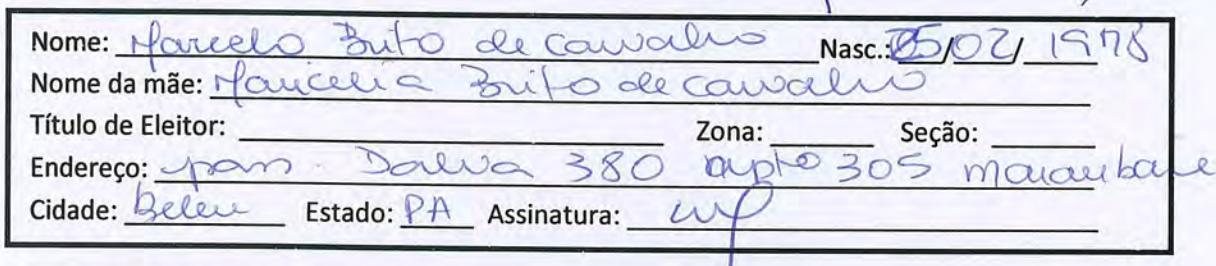 Nome: Marcelo Brito de Carvalho Nasc.: 25/02/1978
Nome da mãe: Maricelia Brito de Carvalho
Título de Eleitor: Zona: Seção:
Endereço: pass. Dalva 380 apto 305 Marambaia
Cidade: Belem Estado: PA Assinatura: